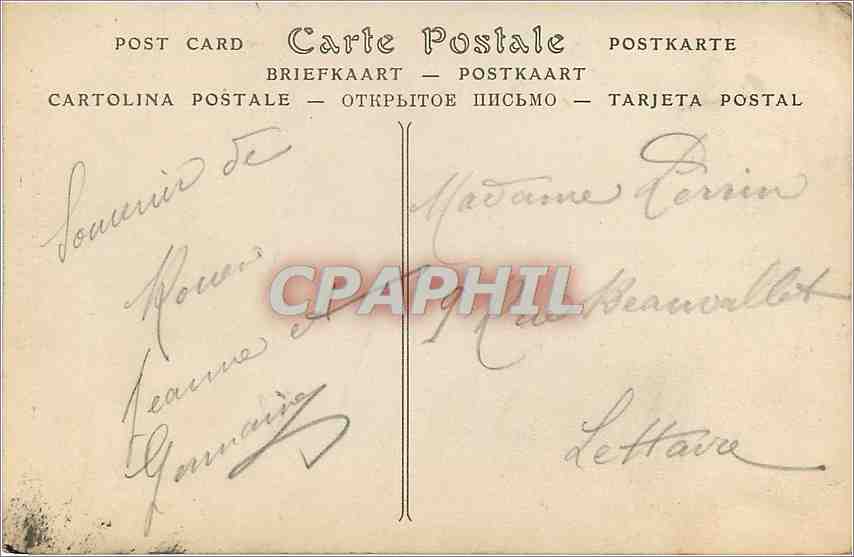 POST CARD Carte Postale POSTKARTE
BRIEFKAART — POSTKAART
CARTOLINA POSTALE — ОТКРЫТОЕ ПИСЬМО — TARJETA POSTAL
Souvenir de
Rouen
Jeanne et
Germaine
Madame Perrin
9 Rue Beauvallet
Le Havre
CPAPHIL